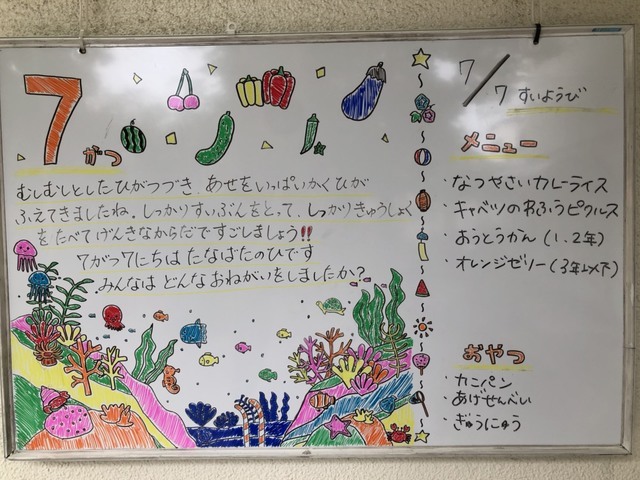 7がつ
むしむしとしたひがつづき、あせをいっぱいかくひが
ふえてきましたね。しっかりすいぶんをとって、しっかりきゅうしょく
をたべてげんきなからだですごしましょう!!
7がつ7にちは たなばたのひです
みんなは どんなおねがいをしましたか?
7/7 すいようび
メニュー
・なつやさいカレーライス
・キャベツのおふうピクルス
・おうとうかん(1.2年)
・オレンジゼリー(3年以下)
おやつ
・カニパン
・あげせんべい
・ぎゅうにゅう